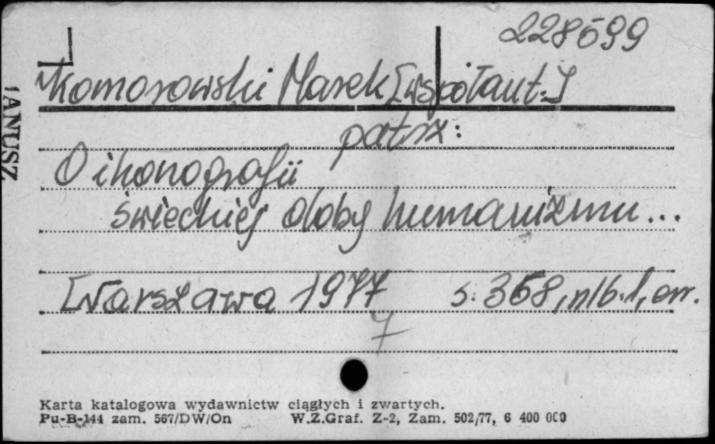 228599
Komorowski Marek [współaut.]
patrz:
O ikonografii
świeckiej doby humanizmu...
Warszawa 1977 s. 368, nlb. 1, err.
7
JANUSZ
Karta katalogowa wydawnictw ciągłych i zwartych.
Pu-B-144 zam. 567/DW/On W.Z.Graf. Z-2, Zam. 502/77, 6 400 000